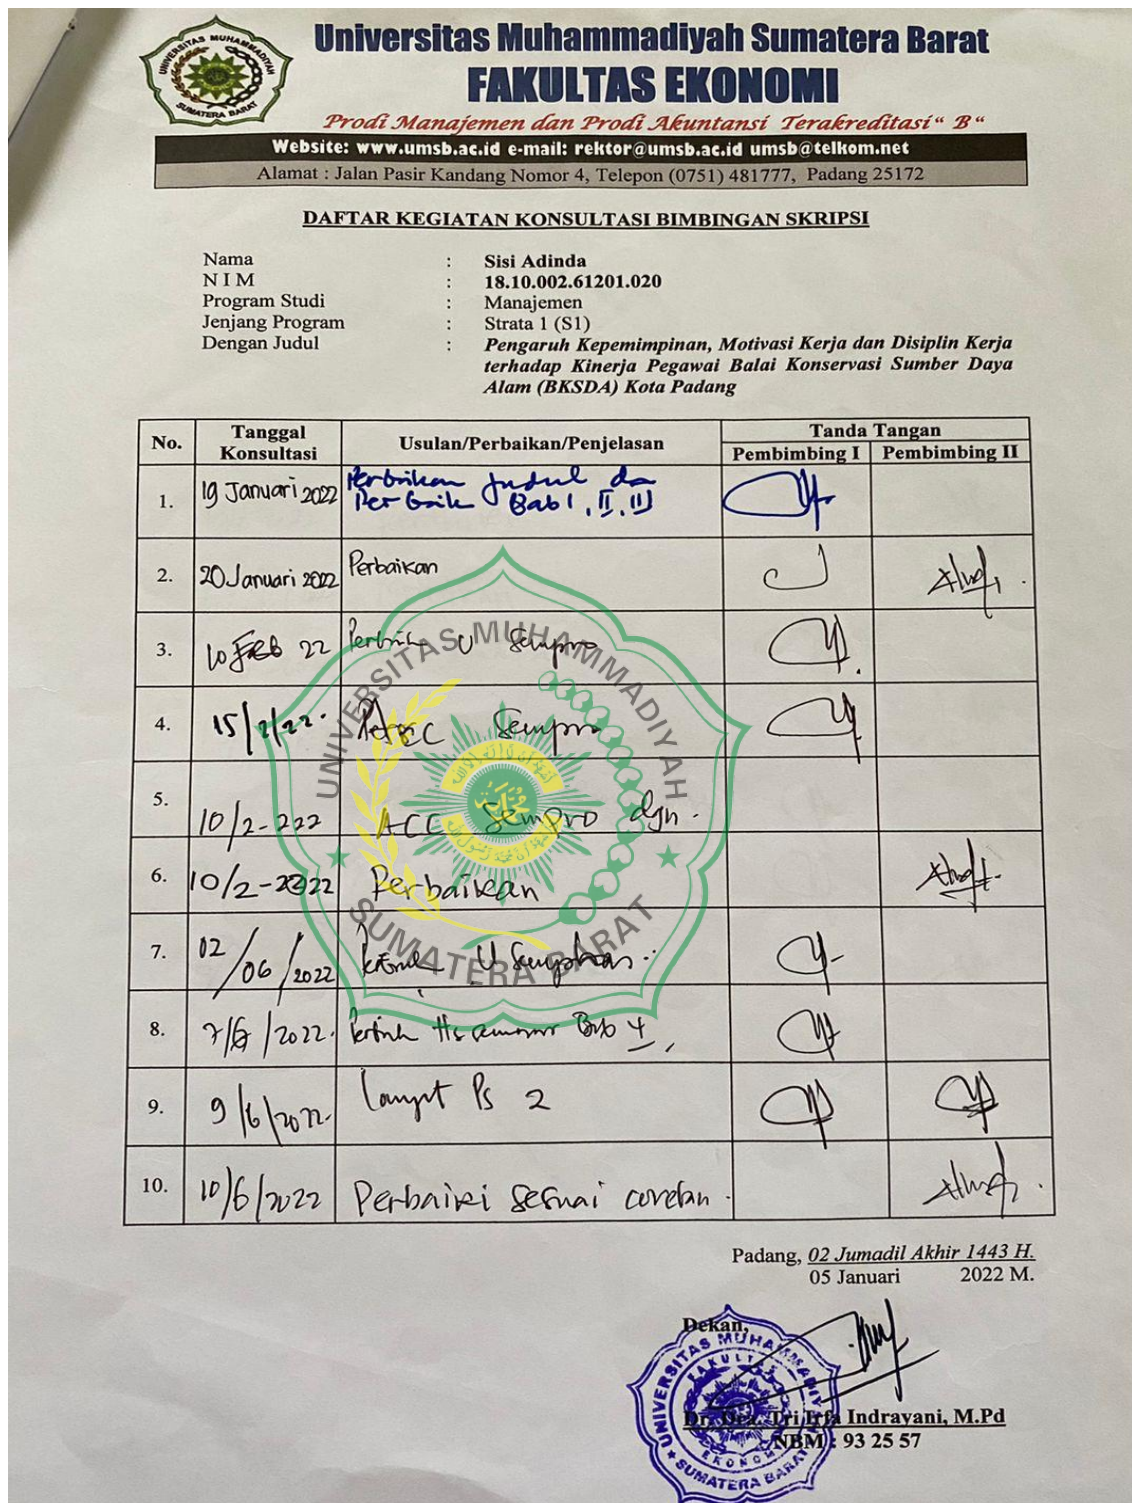 UNIVERSITAS MUHAMMADIYAH
SUMATERA BARAT
Universitas Muhammadiyah Sumatera Barat
FAKULTAS EKONOMI
Prodi Manajemen dan Prodi Akuntansi Terakreditasi“ B “
Website: www.umsb.ac.id e-mail: rektor@umsb.ac.id umsb@telkom.net
Alamat : Jalan Pasir Kandang Nomor 4, Telepon (0751) 481777, Padang 25172
DAFTAR KEGIATAN KONSULTASI BIMBINGAN SKRIPSI
Nama : Sisi Adinda
N I M : 18.10.002.61201.020
Program Studi : Manajemen
Jenjang Program : Strata 1 (S1)
Dengan Judul : Pengaruh Kepemimpinan, Motivasi Kerja dan Disiplin Kerja
terhadap Kinerja Pegawai Balai Konservasi Sumber Daya
Alam (BKSDA) Kota Padang
No. Tanggal Konsultasi Usulan/Perbaikan/Penjelasan Tanda Tangan
Pembimbing I Pembimbing II
1. 19 Januari 2022 Perbaikan Judul da
Perbaik Bab I, II, III
2. 20 Januari 2022 Perbaikan
3. 10 Feb 22 U Sempro
4. 15/2/22. Sempro
5. 10/2-222 ACC Sempro dgn.
6. 10/2-2022 Perbaikan
7. 02/06/2022 U
8. 7/6/2022. Bab 4
9. 9/6/2022. Lanjut Ps 2
10. 10/6/2022 Perbaiki sesuai coretan.
UNIVERSITAS MUHAMMADIYAH
SUMATERA BARAT
Padang, 02 Jumadil Akhir 1443 H.
05 Januari 2022 M.
Dekan,
UNIVERSITAS MUHAMMADIYAH
FAKULTAS
EKONOMI
SUMATERA BARAT
Dr. Dra. Tri Irfa Indrayani, M.Pd
NBM : 93 25 57